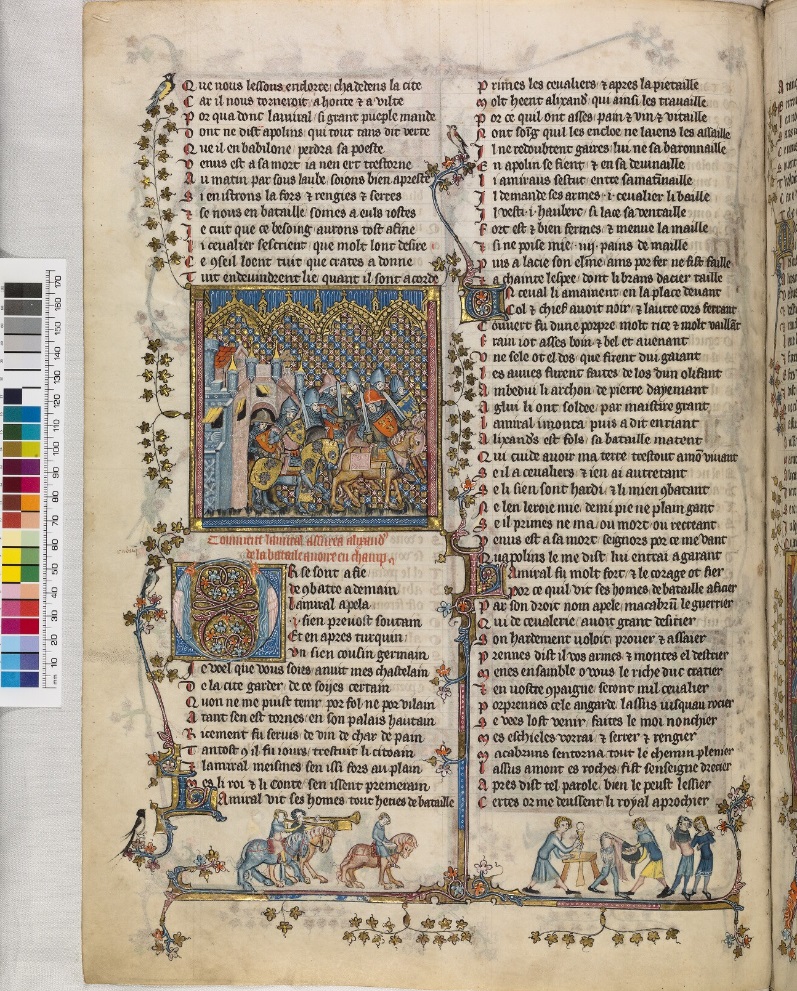 Que nous lessons enclorre cha dedens la cite
Car il nous torneroit a honte & a vilte
Por qua dont lamiral si grant pueple mande
Dont ne dist apolins qui tout tans dit verte
Que il en babilone perdra sa poeste
Venus est a sa mort ia nen ert trestorne
Au matin par sous laube soions bien apreste
Si en istrons la fors & rengies & serres
& se nous en bataille somes a euls iostes
Je cuit que ce besoing aurons tost afine
li cevalier sescrient que molt lont desire
Ce 9seil loent tuit que crates a donne
Tuit endevindrent lie quant il sont acorde
la bataile avoire en champ
si se sont afie
de 9batre a demain
lamiral apela
.y. sien prevost soutain
Et en apres turquin
Un sien cousin germain
Je voel que vous soies anuit mes chastelain
De la cite garder de ce soijes certain
Quon ne me puist tenir por fol ne por vilain
Atant sen est tornes en son palais hautain
Ricement fu servis de vin de char de pain
Tantost 9 il fu iours trestuit li citoain
& lamiral meismes sen issi fors au plain
li roi & li conte sen issent premerain
Lamiral vit ses homes tout henes de bataille
Primes les cevaliers & apres la pietaille
Molt heent alixand qui ainsi les travaille
Por ce quil ont asses pain & vin & vitaille
Nont soig quil les encloe ne laiens les assaille
Il ne redoubtent gaires lui ne sa baronnaille
En apolin se fient & en sa devinaille
li amiraus sestut entre sa matinaille
Il demande ses armes .i. cevalier li baille
Il vesti .i. hauberc si lace sa ventaille
Fort est & bien fermes & menue la maille
& si ne poise mie .iiij. pains de maille
Puis a lacie son elme ains por fer ne fist faille
& a chainte lespee dont li brans dacier taille
Un ceval li amainent en la place devant
Col & chief avoit noir & lautre cors ferrant
Couvert fu dune porpre molt rice & molt vaillat
Frain i ot asses boin & bel et avenant
Une sele ot el dos que firent dui gaiant
Les auves furent faites de los dun olifant
Ambedui li archon de pierre dayemant
Aglui li ont soldee par maistire grant
lamiral i monta puis a dit en riant
Alixandres est fols sa bataille matent
Qui cuide avoir ma terre trestout a mo vivant
Se il a cevaliers & ien ai autretant
Se li sien sont hardi & li mien 9batant
Ne len leroie mie demi pie ne plain gant
Se il primes ne ma ou mort ou recreant
Venus est a sa mort seignors por ce me vant
Qu apolins le me dist lui en trai a garant
Lamiral fu molt fort & le corage ot fier
Por ce quil vit ses homes de bataille aficier
Par son droit nom apele macabrin le guerrier
Qui de cevalerie avoit grant desirier
Son hardement voloit prover & assaier
Prennes dist il vos armes & montes el destrier
Menes ensamble o vous le riche duc cratier
& en vostre 9paigne seront mil cevalier
Porprennes cele angarde lassus iusquau rocier
Se vees lost venir faites le moi noncier
Mes eschieles vorrai & serrer & rengier
Macabrins sen torna tout le chemin plenier
lassus amont es roches fist senseigne drecier
Apres dist tel parole bien le peust lessier
Certes or me deussent li royal aprochier